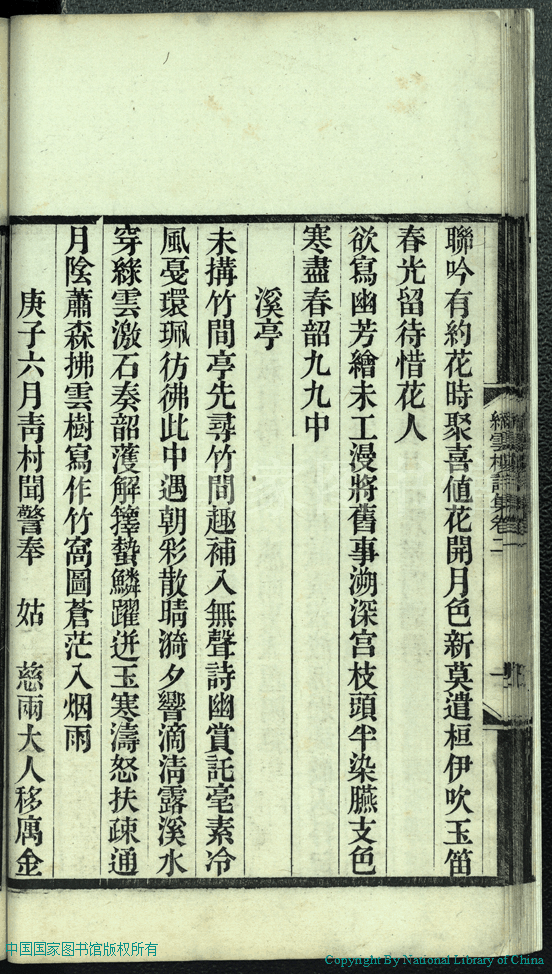 聯吟有約花時聚喜値花開月色新莫遣桓伊吹玉笛
春光留待惜花人
欲寫幽芳繪未工漫將舊事溯深宫枝頭半染臙支色
寒盡春韶九九中
溪亭
未搆竹間亭先尋竹間趣補入無聲詩幽賞託毫素冷
風戞環珮彷彿此中遇朝彩散晴漪夕響滴淸露溪水
穿綠雲激石奏韶濩解籜蟄鱗躍迸玉寒濤怒扶疎通
月陰蕭森拂雲樹寫作竹窩圖蒼茫入烟雨
庚子六月靑村聞警奉 姑 慈雨大人移厲金
樓詩集卷二
中国国家图书馆版权所有
Copyright By National Library of China